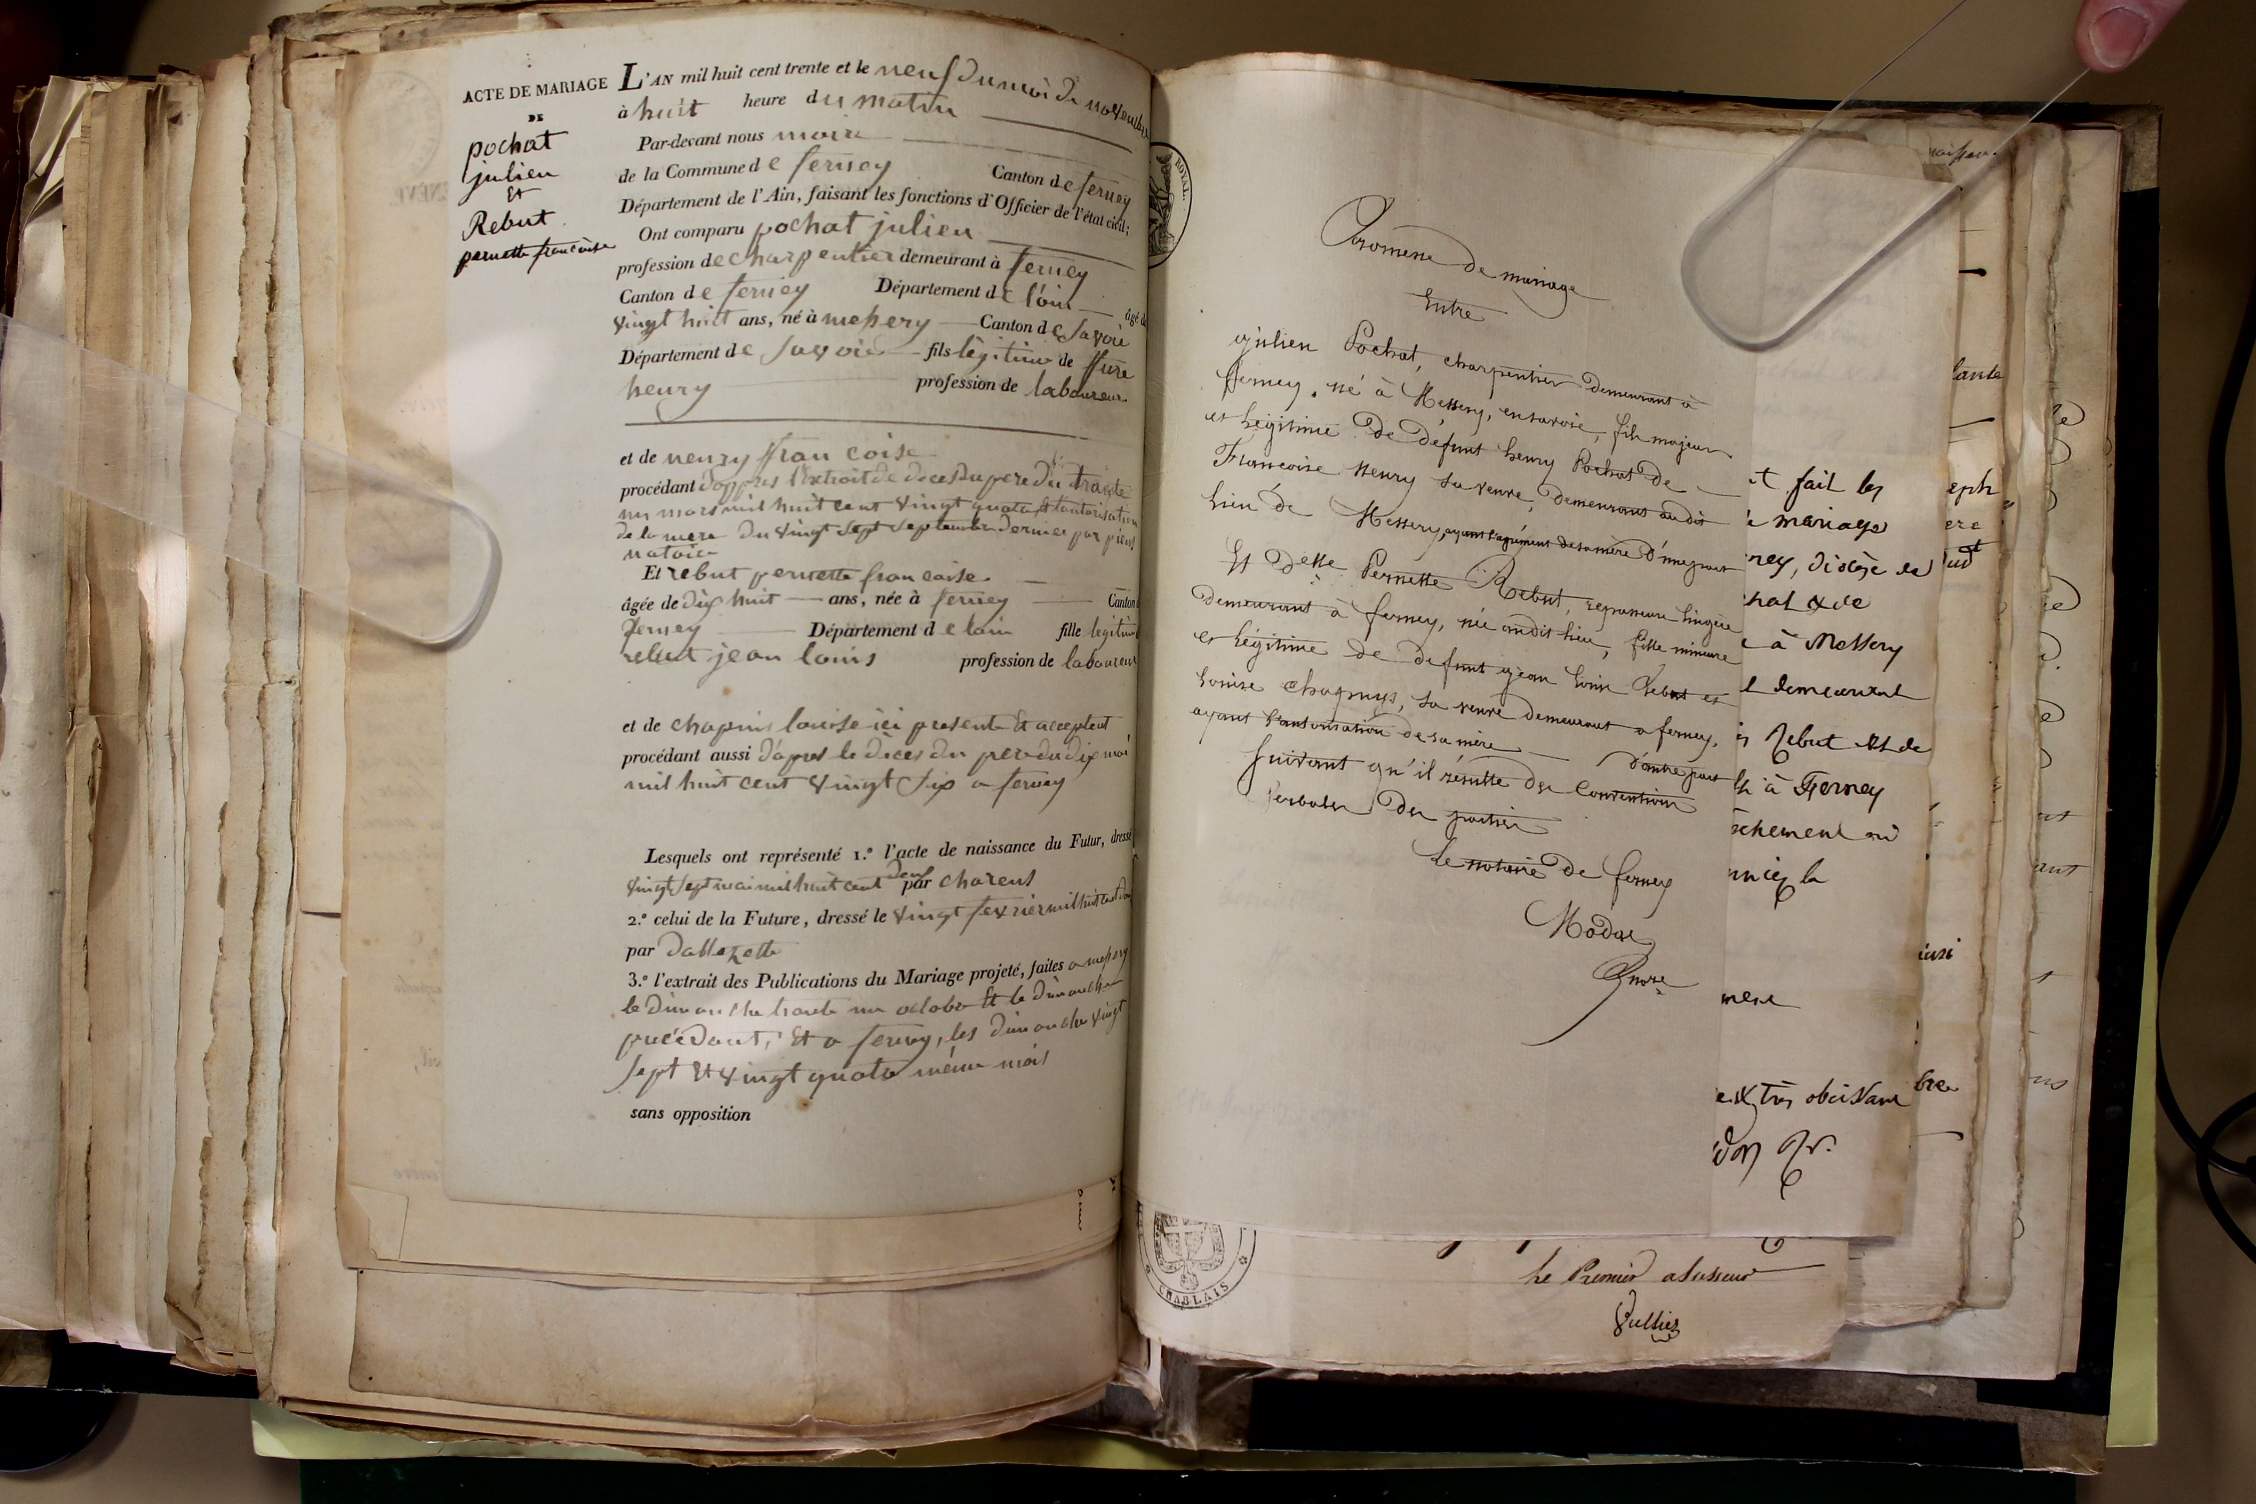 ACTE DE MARIAGE
DE
pochat
julien
Et
Rebut
pernette francoise
L'AN mil huit cent trente et le neuf du moi de novembre
à huit heure du matin
Par-devant nous maire
de la Commune de ferney Canton de ferney
Département de l'Ain, faisant les fonctions d'Officier de l'état civil;
Ont comparu pochat julien
profession de charpentier demeurant à ferney
Canton de ferney Département de l'ain âgé de
vingt huit ans, né à messery Canton de savoie
Département de savoie fils légitime de ffure
henry profession de laboureur
et de neury ffrancoise
procédant d'appres l'extrait de deces du pere du trante
un mars mil huit cent vingt quatre Et l'autorisation
de la mere du vingt sept septembre dernier par
notoire
Et rebut pernette francoise
âgée de dix huit ans, née à ferney Canton
ferney Département de lain fille legitime
rebut jean louis profession de laboureur
et de chapuis louise ici presente Et acceptent
procédant aussi d'apres le dèces du pere du dix mai
mil huit cent vingt six a ferney
Lesquels ont représenté 1.º l'acte de naissance du Futur, dressé
vingt sept mai mil huit cent deux par charens
2.º celui de la Future, dressé le vingt fevrier mil huit cent
par
3.º l'extrait des Publications du Mariage projeté, faites a messery
le dimanche trante un octobre Et le dimanche
précédant, Et a ferney, les dimanche vingt
sept Et vingt quatre même mois
sans opposition
ROYAL
Promesse de mariage
Entre
Julien Pochat, charpentier demeurant à
ferney, né à Messery, en savoie, fils majeur
et légitime de défunt henry Pochat de
Francoise Neury sa veuve, demeurant audit
lieu de Messery, ayant l'agrément de sa mère d'une part
Et Delle Pernette Rebut, repasseuse lingère
demeurant à ferney, née audit lieu, fille mineure
et légitime de defunt jean Louis Rebut et
Louise Chapuis, sa veuve demeurant a ferney,
ayant l'autorisation de sa mère d'autre part
Suivant qu'il résulte des Conventions
verbales des parties
Le notaire de ferney
t fait les
mariage
ney, diocèse de
chat & de
à Messery
t demeurant
Rebut Et de
à Ferney
chement ou
la
mese
ex très obéissant
lante
eph
ere
ainsi
bre
CHABLAIS
Le Premier assesseur
Vulliez